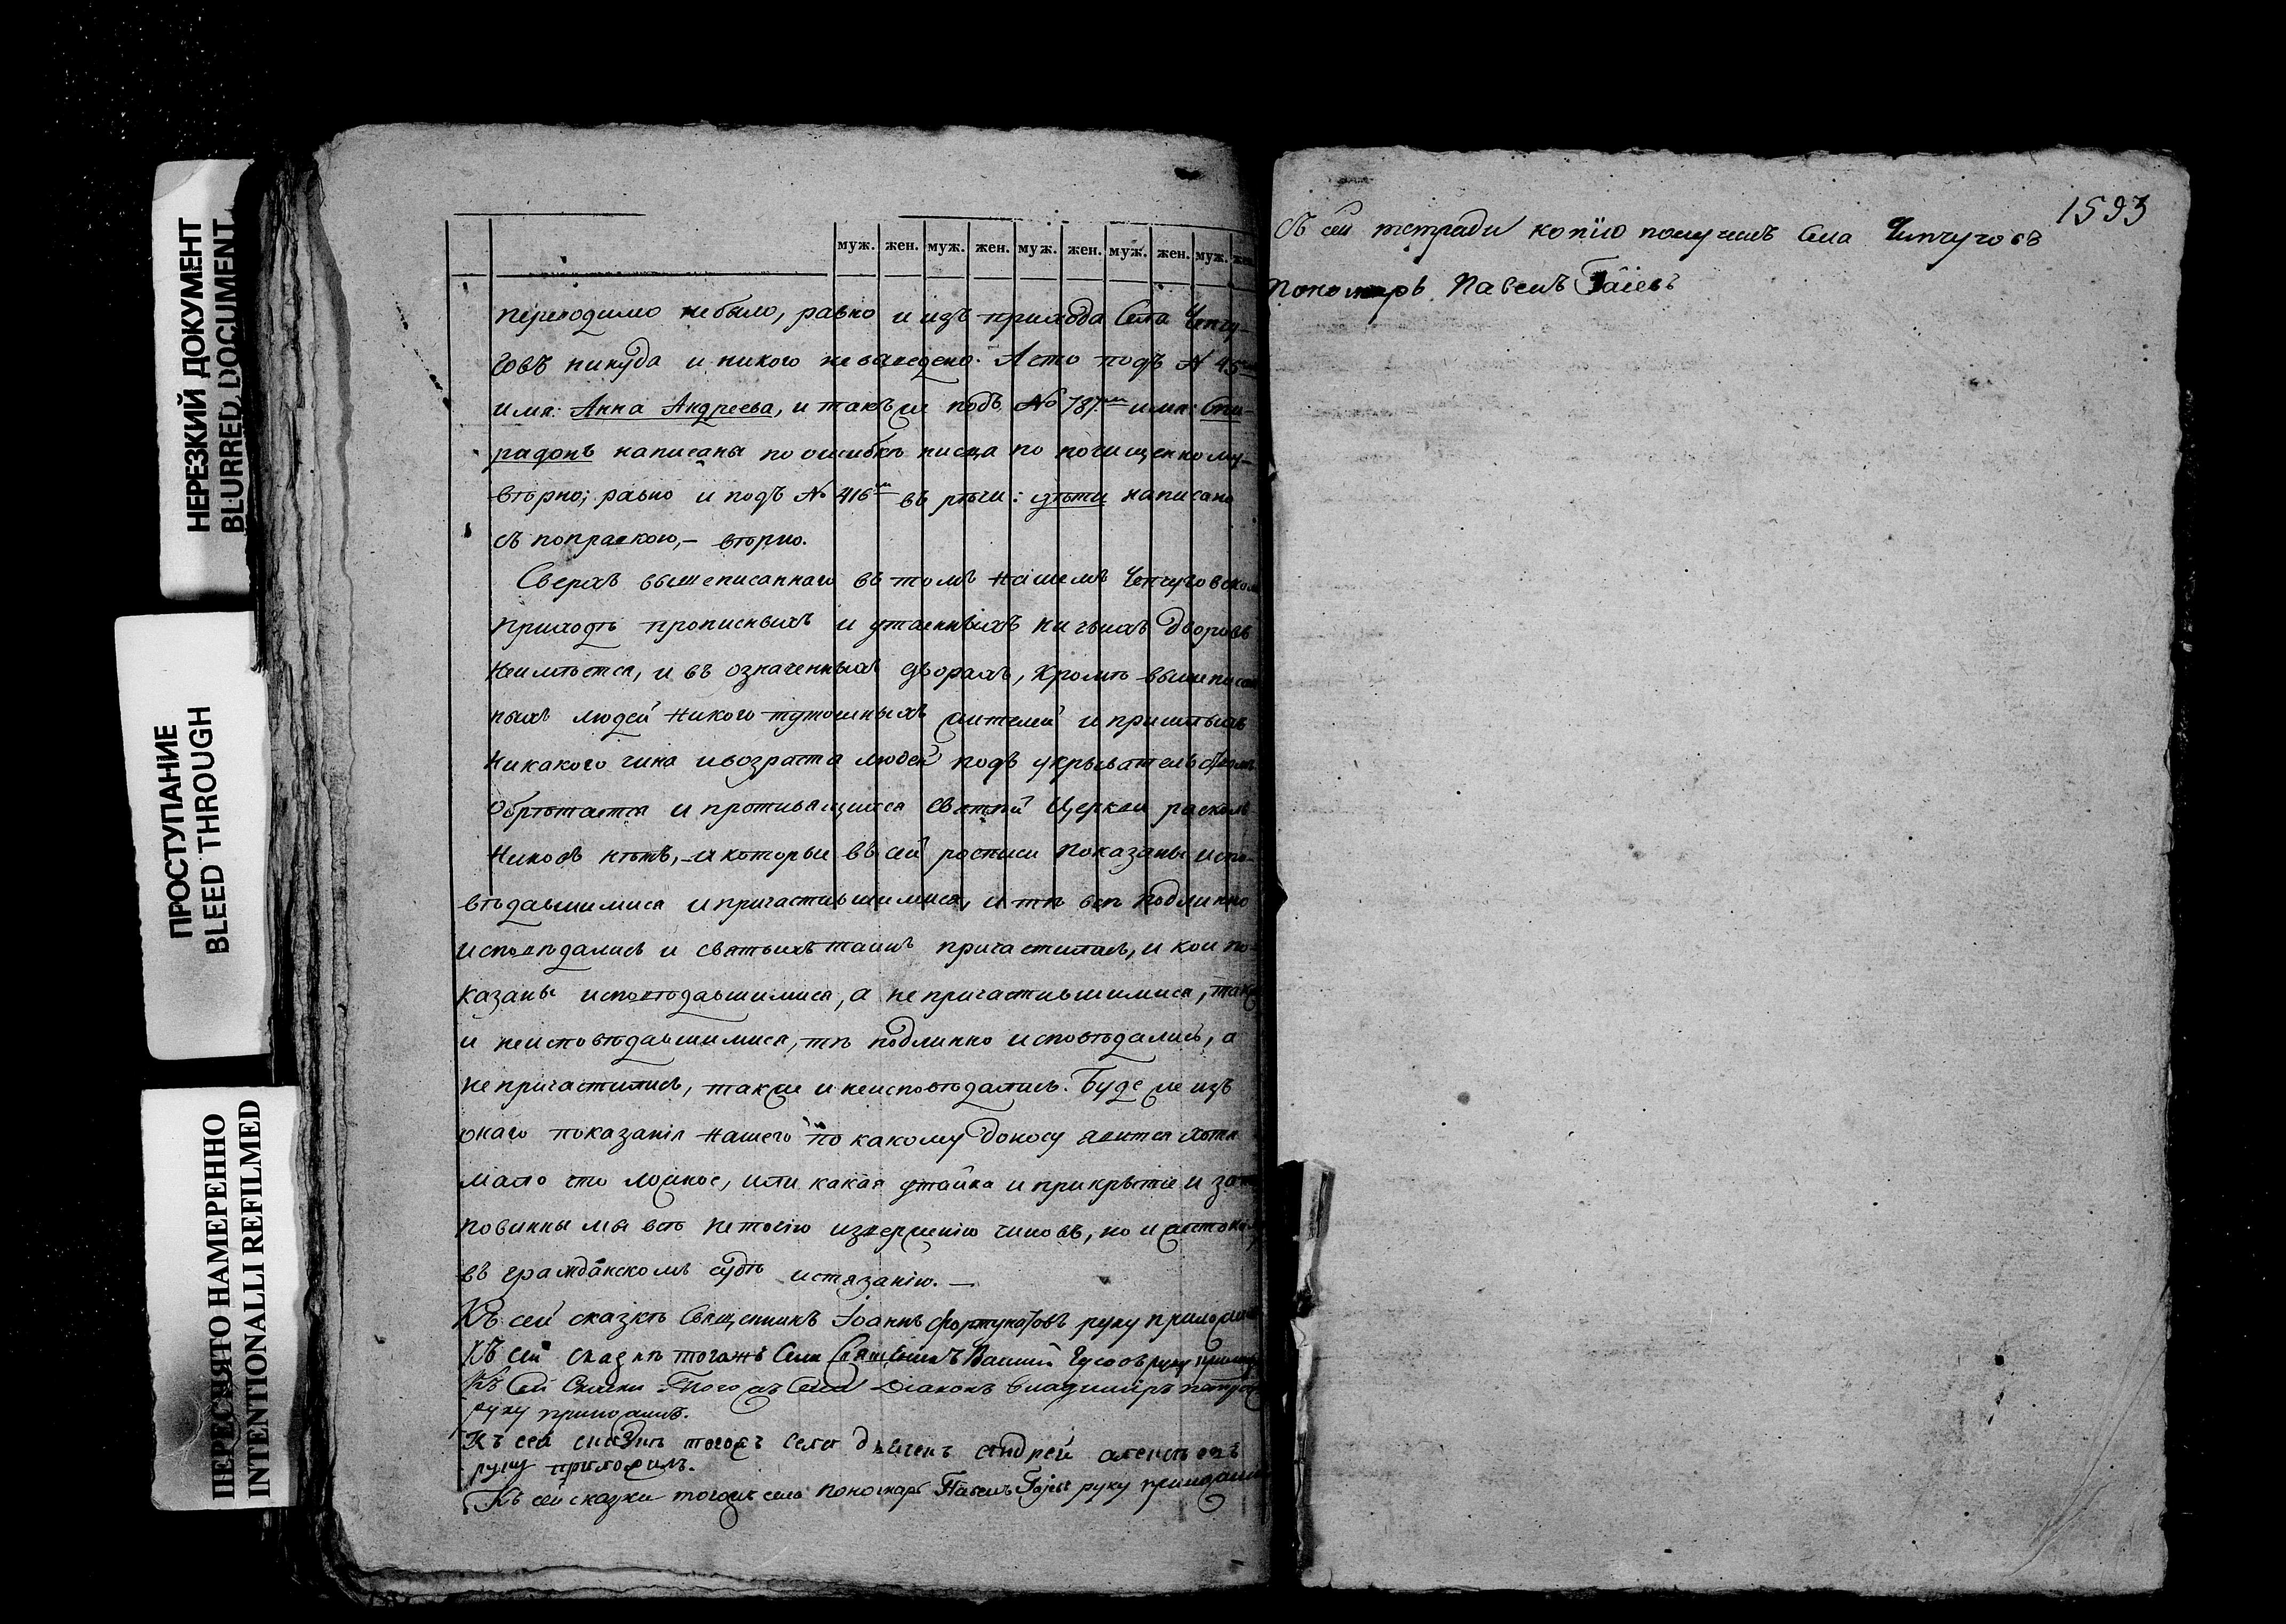 НЕРЕЗКИЙ ДОКУМЕНТ
BLURRED DOCUMENT
ПРОСТУПАНИЕ
BLEED THROUGH
ПЕРЕСНЯТО НАМЕРЕННО
INTENTIONALLI REFILMED
муж. жен. муж. жен. муж. жен. муж. жен. муж. жен.
переходимо небыло, равно и изъ прихода Села Чепчу-
говъ никуда и никого не выведено. А что подъ № 45
имя: Анна Андреева, и такъ же подъ № 787 имя: Спи-
ридонъ написаны по ошибкѣ писца по почищенному
вѣрно; равно и подъ № 416 въ рѣчи: дѣти написано
съ поправкою,– вѣрно.
Сверхъ вышеписаннаго въ томъ нашемъ Чепчуговском
приходѣ прописныхъ и утаенныхъ ничьихъ дворовъ
неимѣется, и въ означенныхъ дворахъ, кромѣ вышеписан
ныхъ людей никого тутошныхъ жителей и пришлыхъ
никакого чина и возраста людей подъ укрывательствомъ
обрѣтается и противящихся Святѣй Церкви расколь
никовъ нѣтъ, и которые въ сей росписи показаны испо-
вѣдавшимися и причастившимися, и тѣ всѣ подлинно
исповѣдались и святыхъ таинъ причастились, и кои по-
казаны исповѣдавшимися, а не причастившимися, также
и неисповѣдавшимися, тѣ подлинно исповѣдались, а
не причастились, также и неисповѣдались. Буде же изъ
онаго показанія нашего по какому доносу явится хотя
мало что ложное, или какая утайка и прикрытіе и за то
повинны мы всѣ не точію изверженію чиновъ, но и жестоком
въ гражданскомъ судѣ истязанію. —
Къ сей сказкѣ Священникъ Іоаннъ Фортунатовъ руку приложилъ
Къ сей сказкѣ тогожъ Села Священникъ Василий руку
Къ Сей Сказки Тогожъ Села Діаконъ Владимиръ
руку приложилъ.
Къ сей сказкѣ тогожъ села дьячекъ Андрей Алексѣевъ
руку приложилъ.
Къ сей сказки тогожъ села Пономарь Павелъ Гаіевъ руку приложилъ
1593
Съ сей тетради копїю получилъ Села Чепчуговъ
пономарь Павелъ Гаіевъ